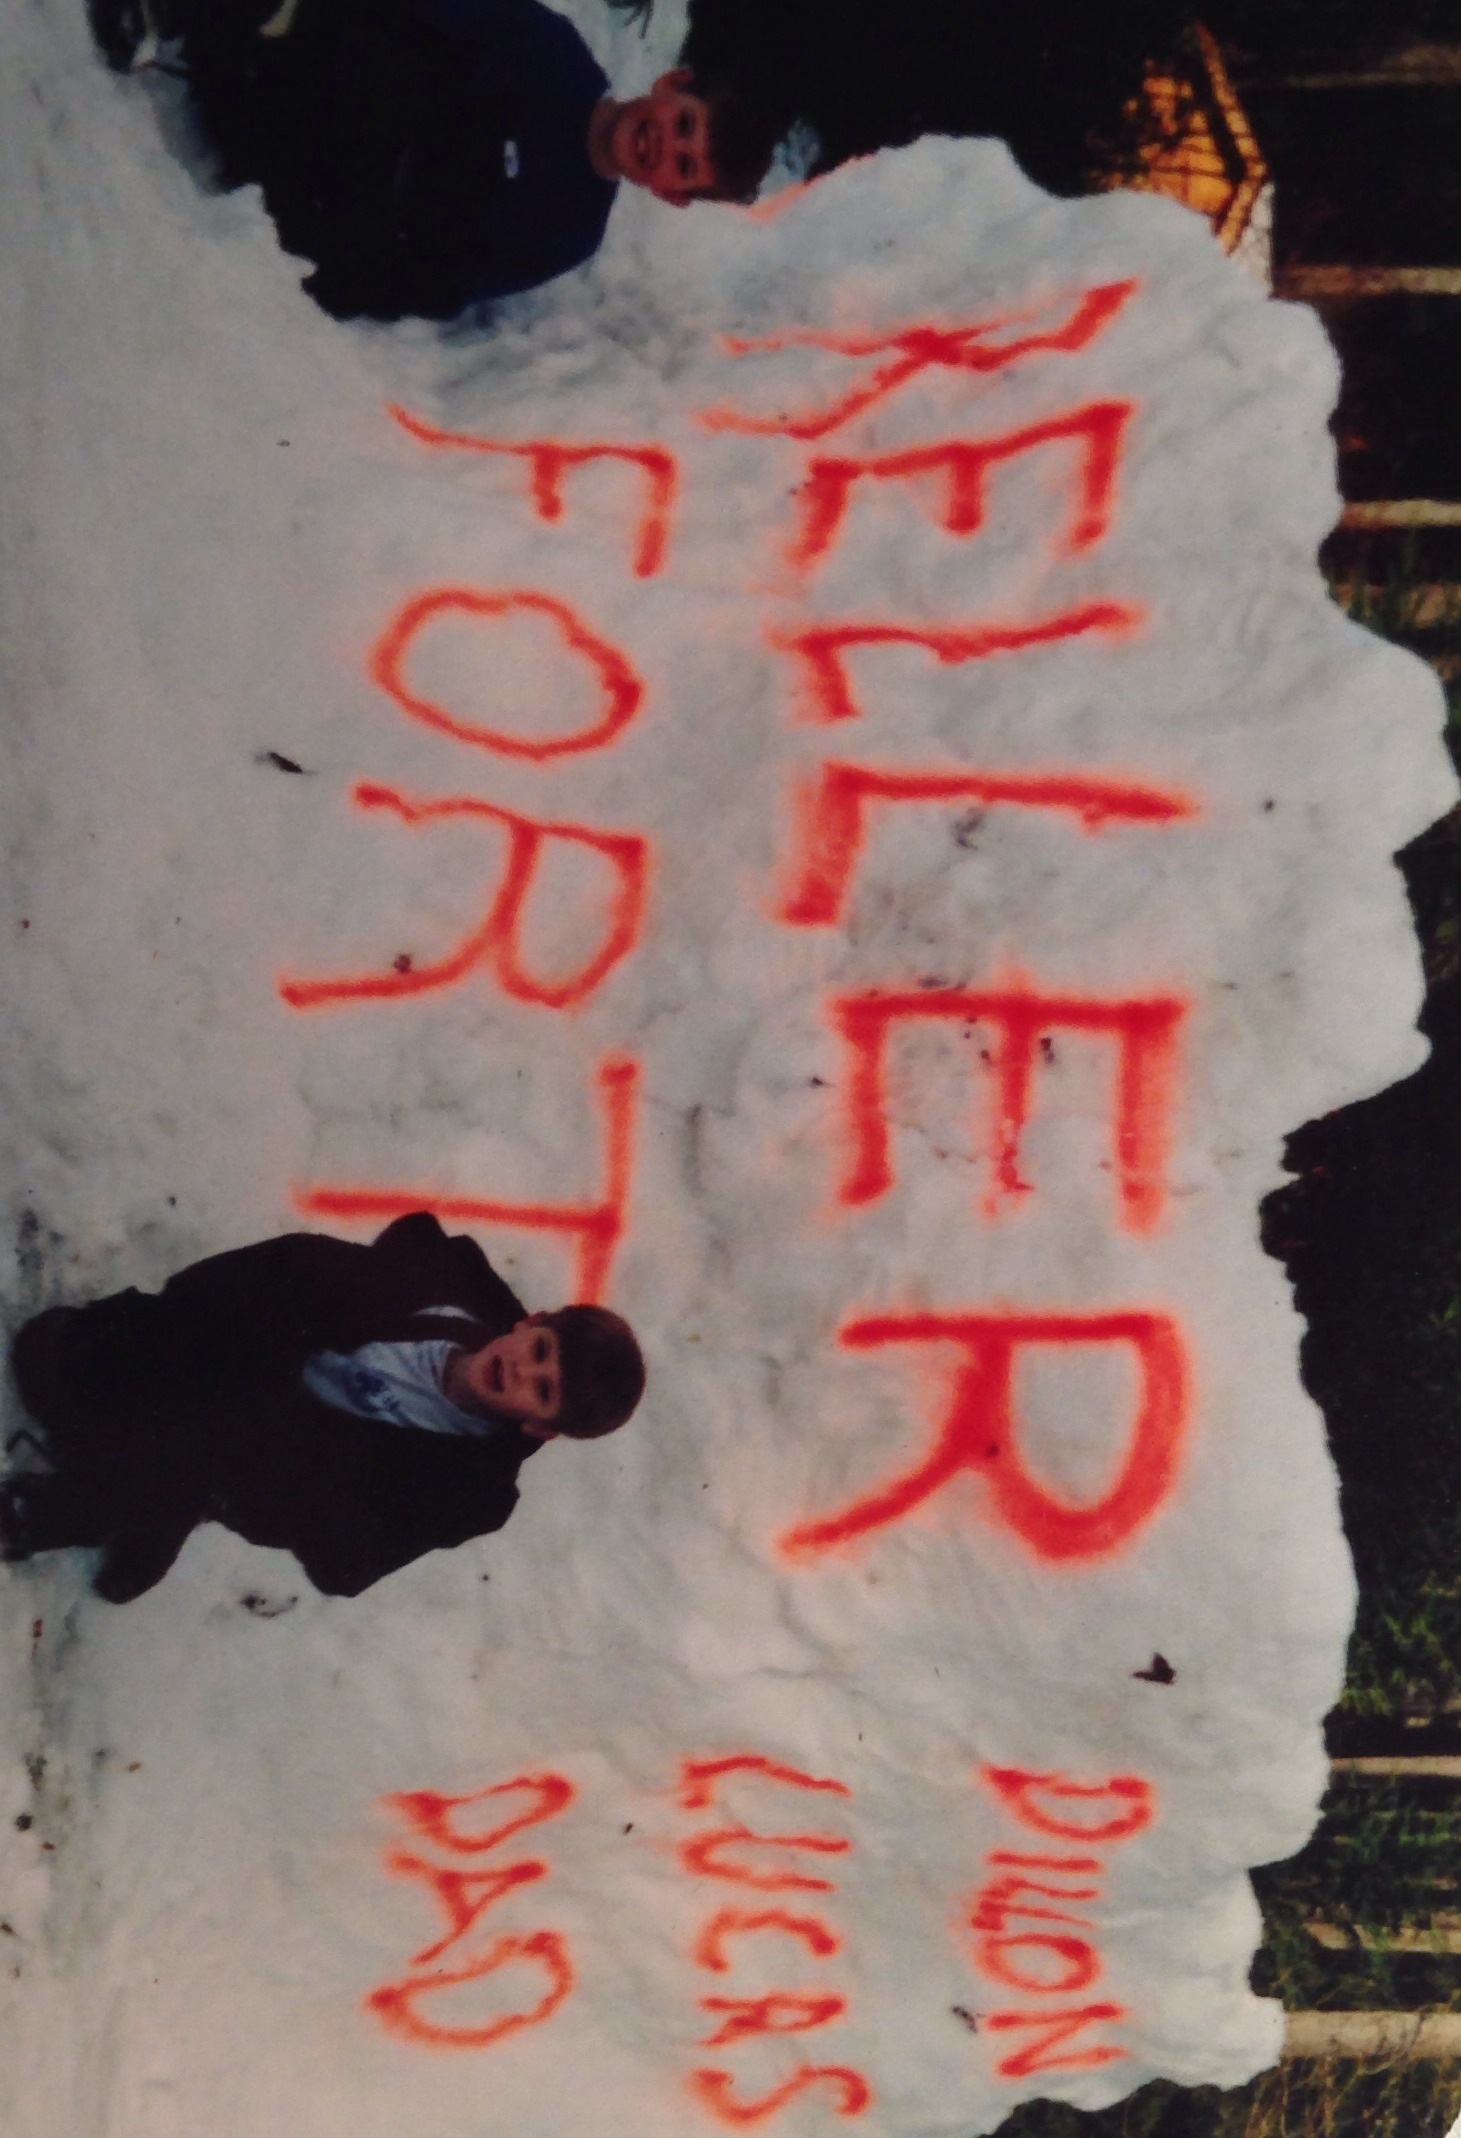 KELLER
FORT
DILLON
LUCAS
DAD